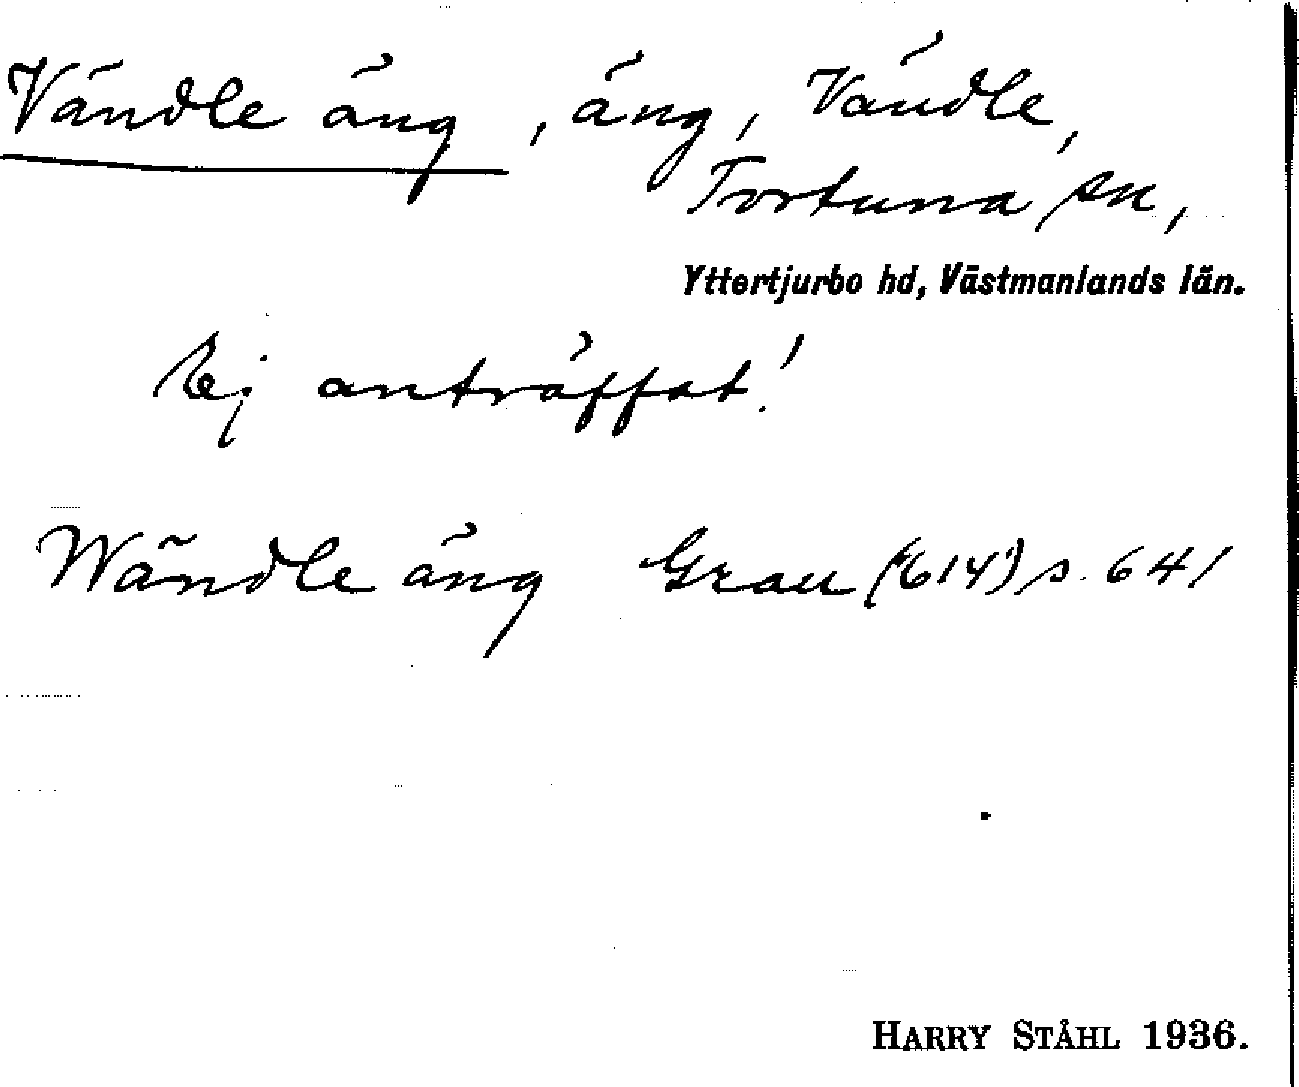 Vändle äng, äng, Vändle,
Tortuna sn,
Yttertjurbo hd, Västmanlands län.
Ej anträffat!
Wändle äng Grau (614) s. 641
HARRY STÅHL 1936.